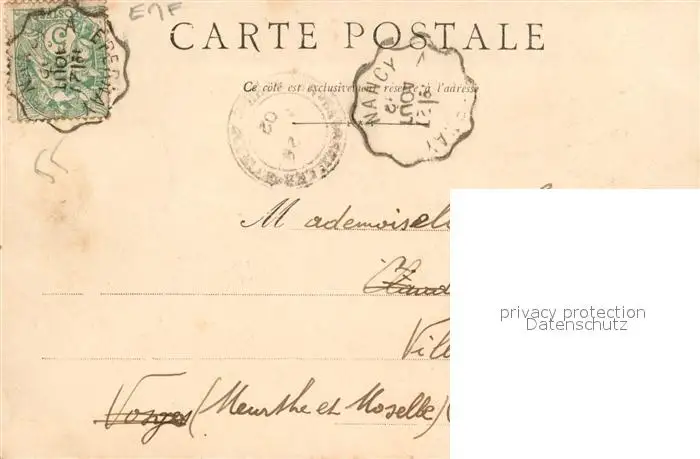 E7F
CARTE POSTALE
Ce côté est exclusivement réservé à l'adresse
NANCY
AOUT
02
55
Mademoisel
Vill
Vosges (Meurthe et Moselle) (
privacy protection
Datenschutz